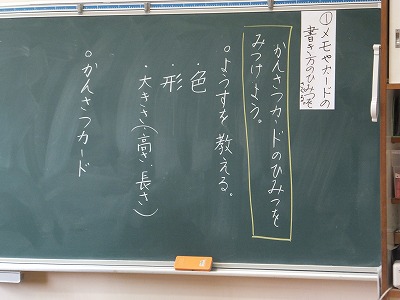 ①メモやカードの
書き方のひみつを
かんさつカードのひみつを
みつけよう。
○ようすを教える。
・色
・形
・大きさ(高さ・長さ)
○かんさつカード